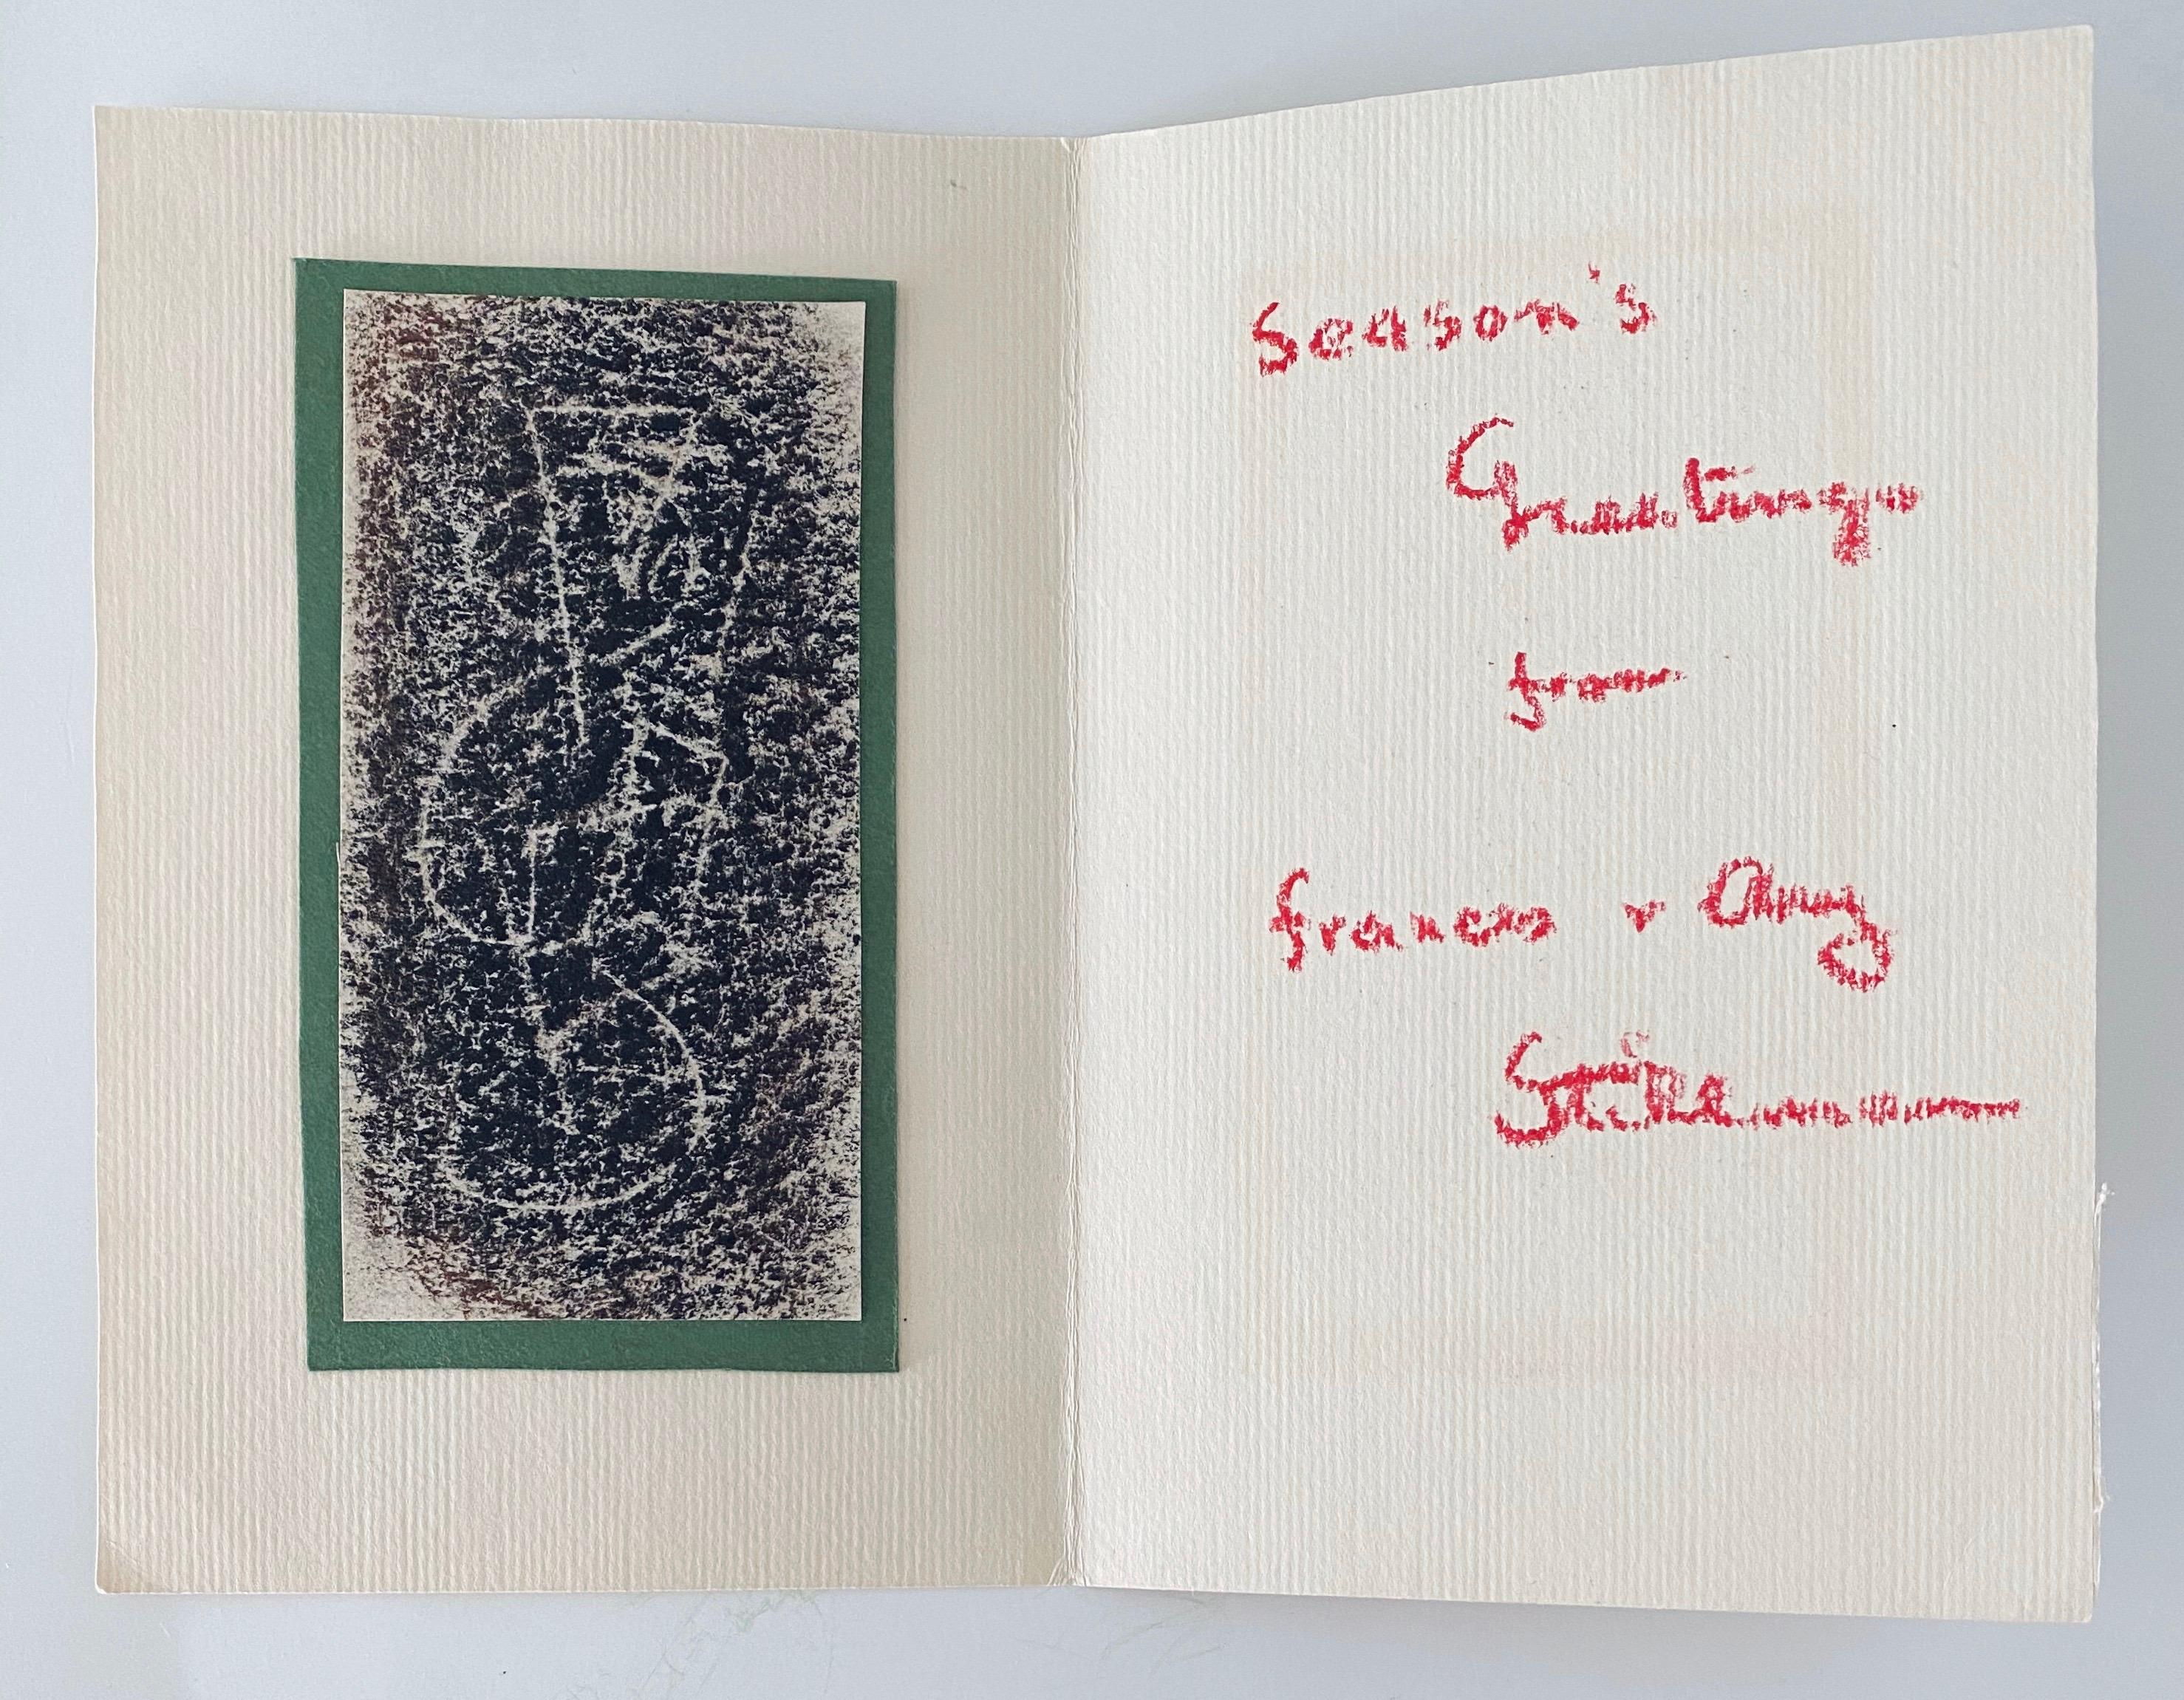 Season's
Greetings
from
Frances & Amy